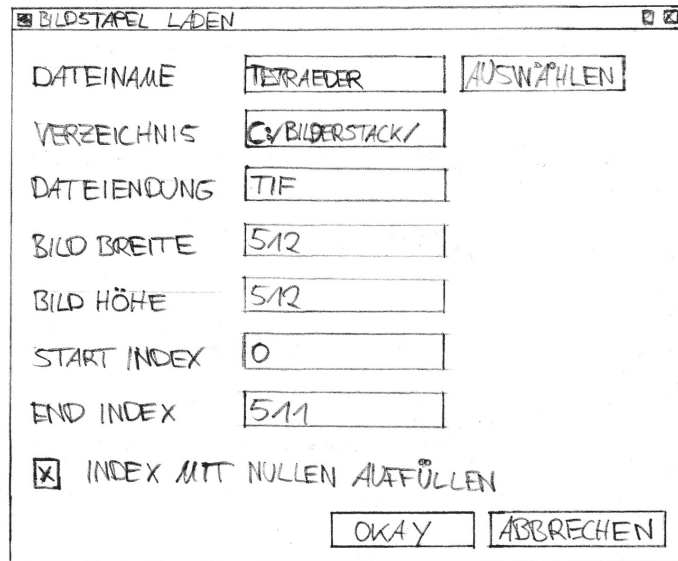 BILDSTAPEL LADEN
DATEINAME TETRAEDER AUSWÄHLEN
VERZEICHNIS C:/BILDERSTACK/
DATEIENDUNG TIF
BILD BREITE 512
BILD HÖHE 512
START INDEX 0
END INDEX 511
X INDEX MIT NULLEN AUFFÜLLEN
OKAY ABBRECHEN